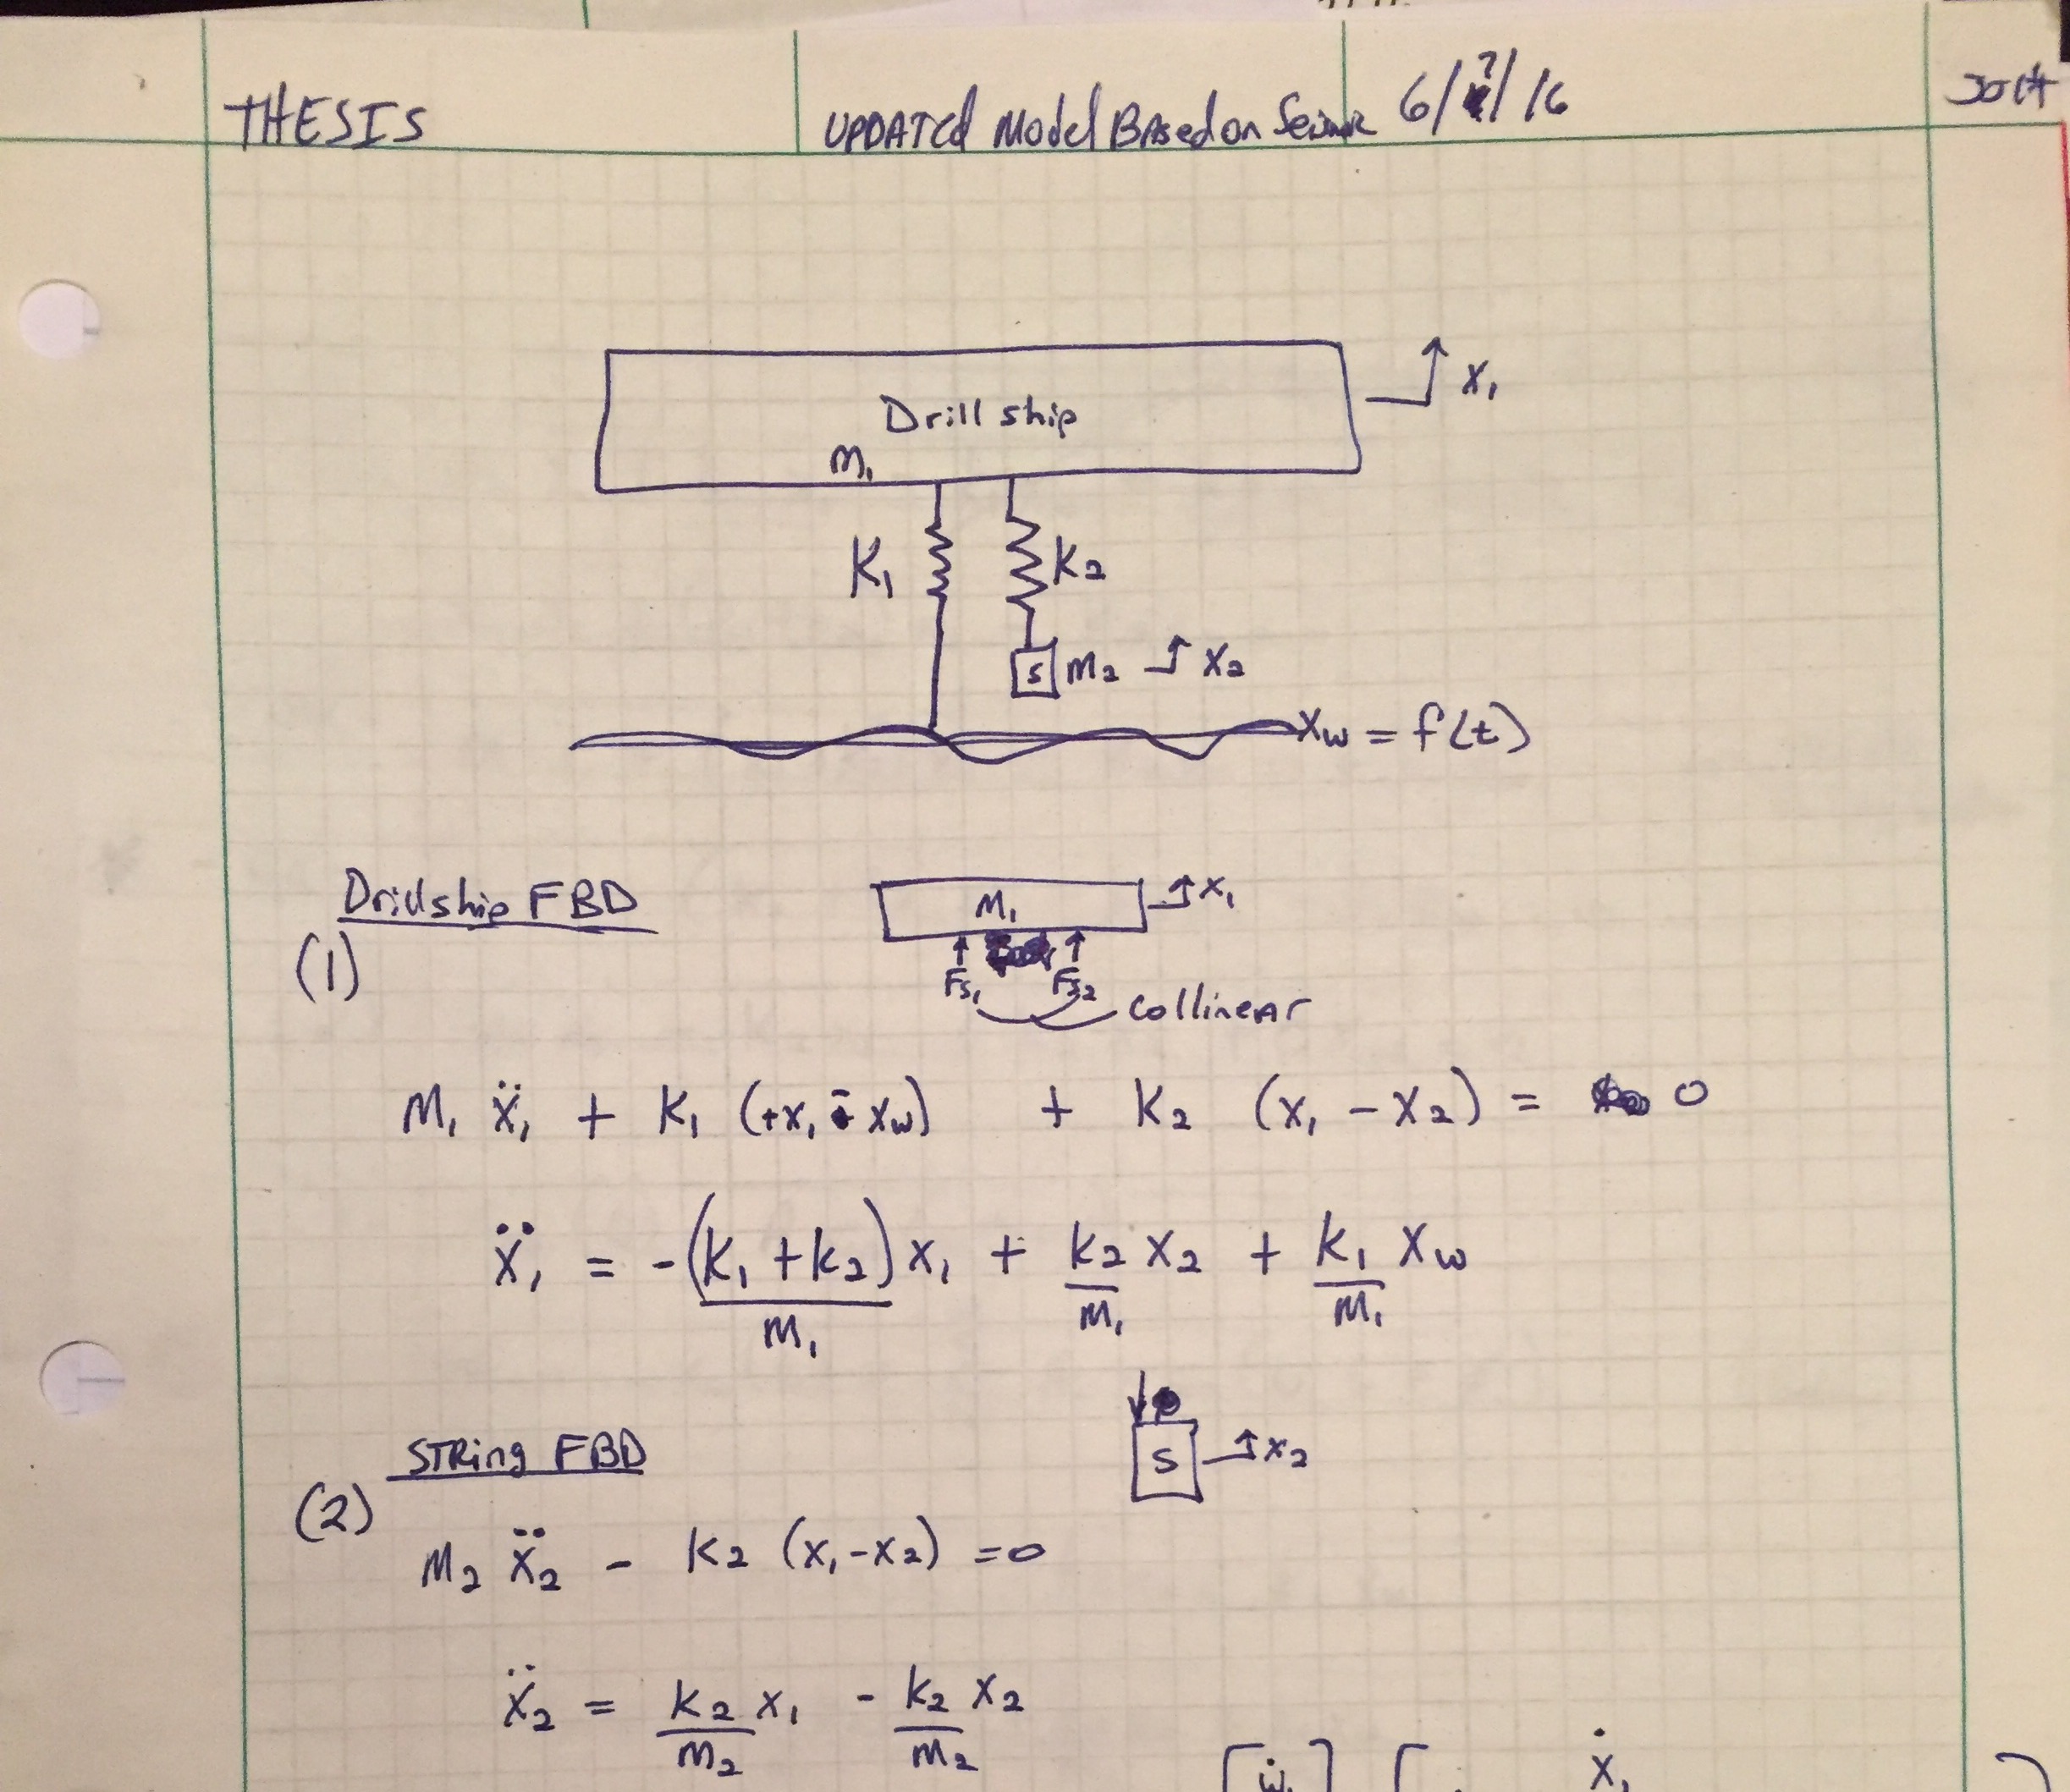 THESIS UPDATEd Model BAsed on Seismic 6/7/16
Drill ship X₁
M₁
K₁ K₂
S M₂ X₂
Xw = f(t)
Drillship FBD M₁ X₁
(1)
Fs₁ Fs₂
collineAr
M₁ Ẍ₁ + K₁ (+X₁ - Xw) + K₂ (X₁ - X₂) = 0
Ẍ₁ = -(K₁ + K₂) X₁ + K₂ X₂ + K₁ Xw
M₁ M₁ M₁
STRing FBD S X₂
(2)
M₂ Ẍ₂ - K₂ (X₁ - X₂) = 0
Ẍ₂ = K₂ X₁ - K₂ X₂
M₂ M₂
Ẋ₁